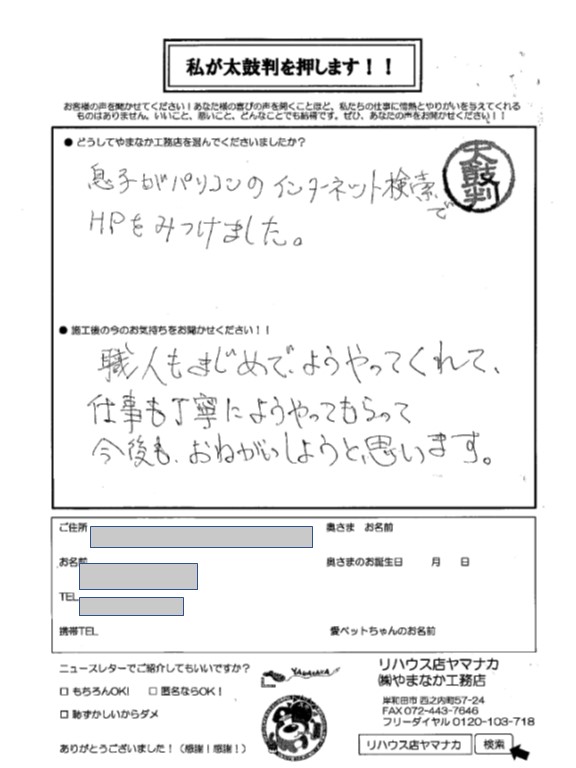 私が太鼓判を押します！！
お客様の声を聞かせてください！あなた様の喜びの声を聞くことほど、私たちの仕事に情熱とやりがいを与えてくれる
ものはありません。いいこと、悪いこと、どんなことでも結構です。ぜひ、あなたの声をお聞かせください！！
● どうしてやまなか工務店を選んでくださいましたか？
太鼓判
息子がパソコンのインターネット検索で
HPをみつけました。
● 施工後の今のお気持ちをお聞かせください！！
職人もまじめで、ようやってくれて、
仕事も丁寧にようやってもらって
今後も、おねがいしようと思います。
ご住所
奥さま お名前
お名前
奥さまのお誕生日 月 日
TEL
携帯TEL
愛ペットちゃんのお名前
ニュースレターでご紹介してもいいですか？
□ もちろんOK! □ 匿名ならOK！
□ 恥ずかしいからダメ
ありがとうございました！（感謝！感謝！）
YAMANAKA
リハウス店ヤマナカ
㈱やまなか工務店
岸和田市 西之内町57-24
FAX 072-443-7646
フリーダイヤル 0120-103-718
リハウス店ヤマナカ 検索